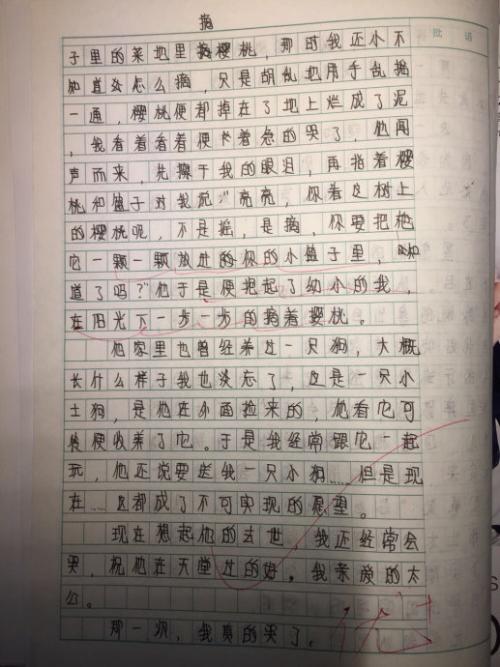 摘
批 语
子里的菜地里摘樱桃，那时我还小不
知道该怎么摘，只是胡乱地用手乱摇
一通，樱桃便都掉在了地上烂成了泥
，我看着看着便着急的哭了，他闻
声而来，先擦干我的眼泪，再指着樱
桃和篮子对我说“亮亮，你看这树上
的樱桃呢，不是摇，是摘，你要把
它一颗一颗放进的你的小篮子里，知
道了吗？”他于是便把起了幼小的我，
在阳光下一步一步的摘着樱桃。
他家里也曾经养过一只狗，大概
长什么样子我也淡忘了，这是一只小
土狗，是他在外面捡来的，他看它可
便收养了它。于是我经常跟它一起
玩，他还说要送我一只小狗……但是现
在……这都成了不可实现的愿望。
现在想起他的去世，我还经常会
哭，祝他在天堂过的好。我亲爱的太
公。
那一次，我真的哭了。
优